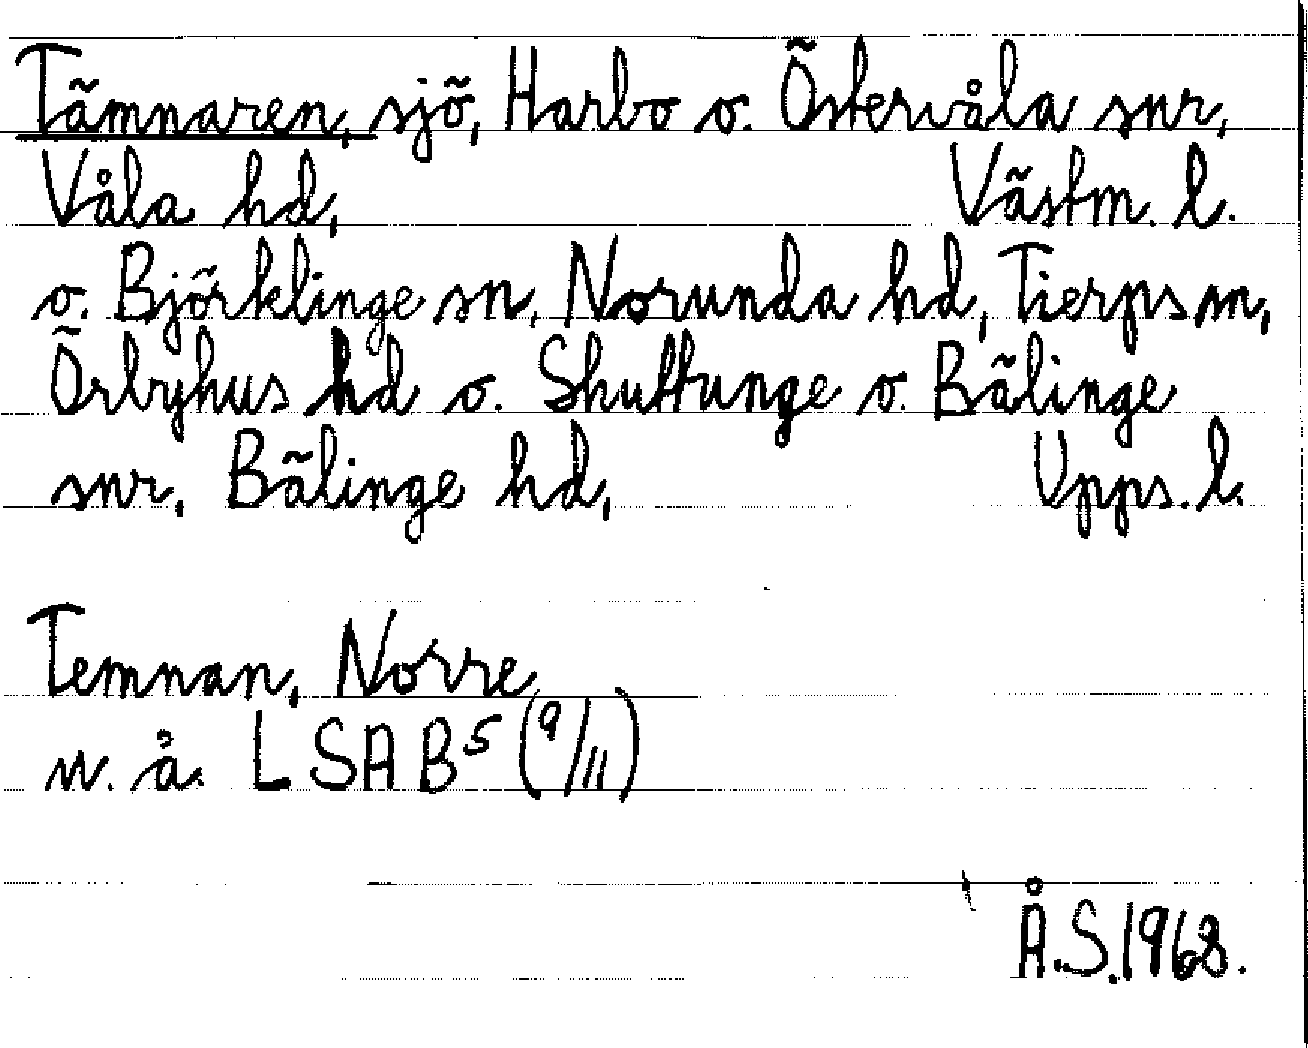 Tämnaren, sjö, Harbo o. Östervåla snr,
Våla hd, Västm. l.
o. Björklinge sn, Norunda hd, Tierps sn,
Örbyhus hd o. Skuttunge o. Bälinge
snr, Bälinge hd, Upps. l.
Temnan, Norre
n. å. LSAB⁵ (9/11)
Å.S. 1968.